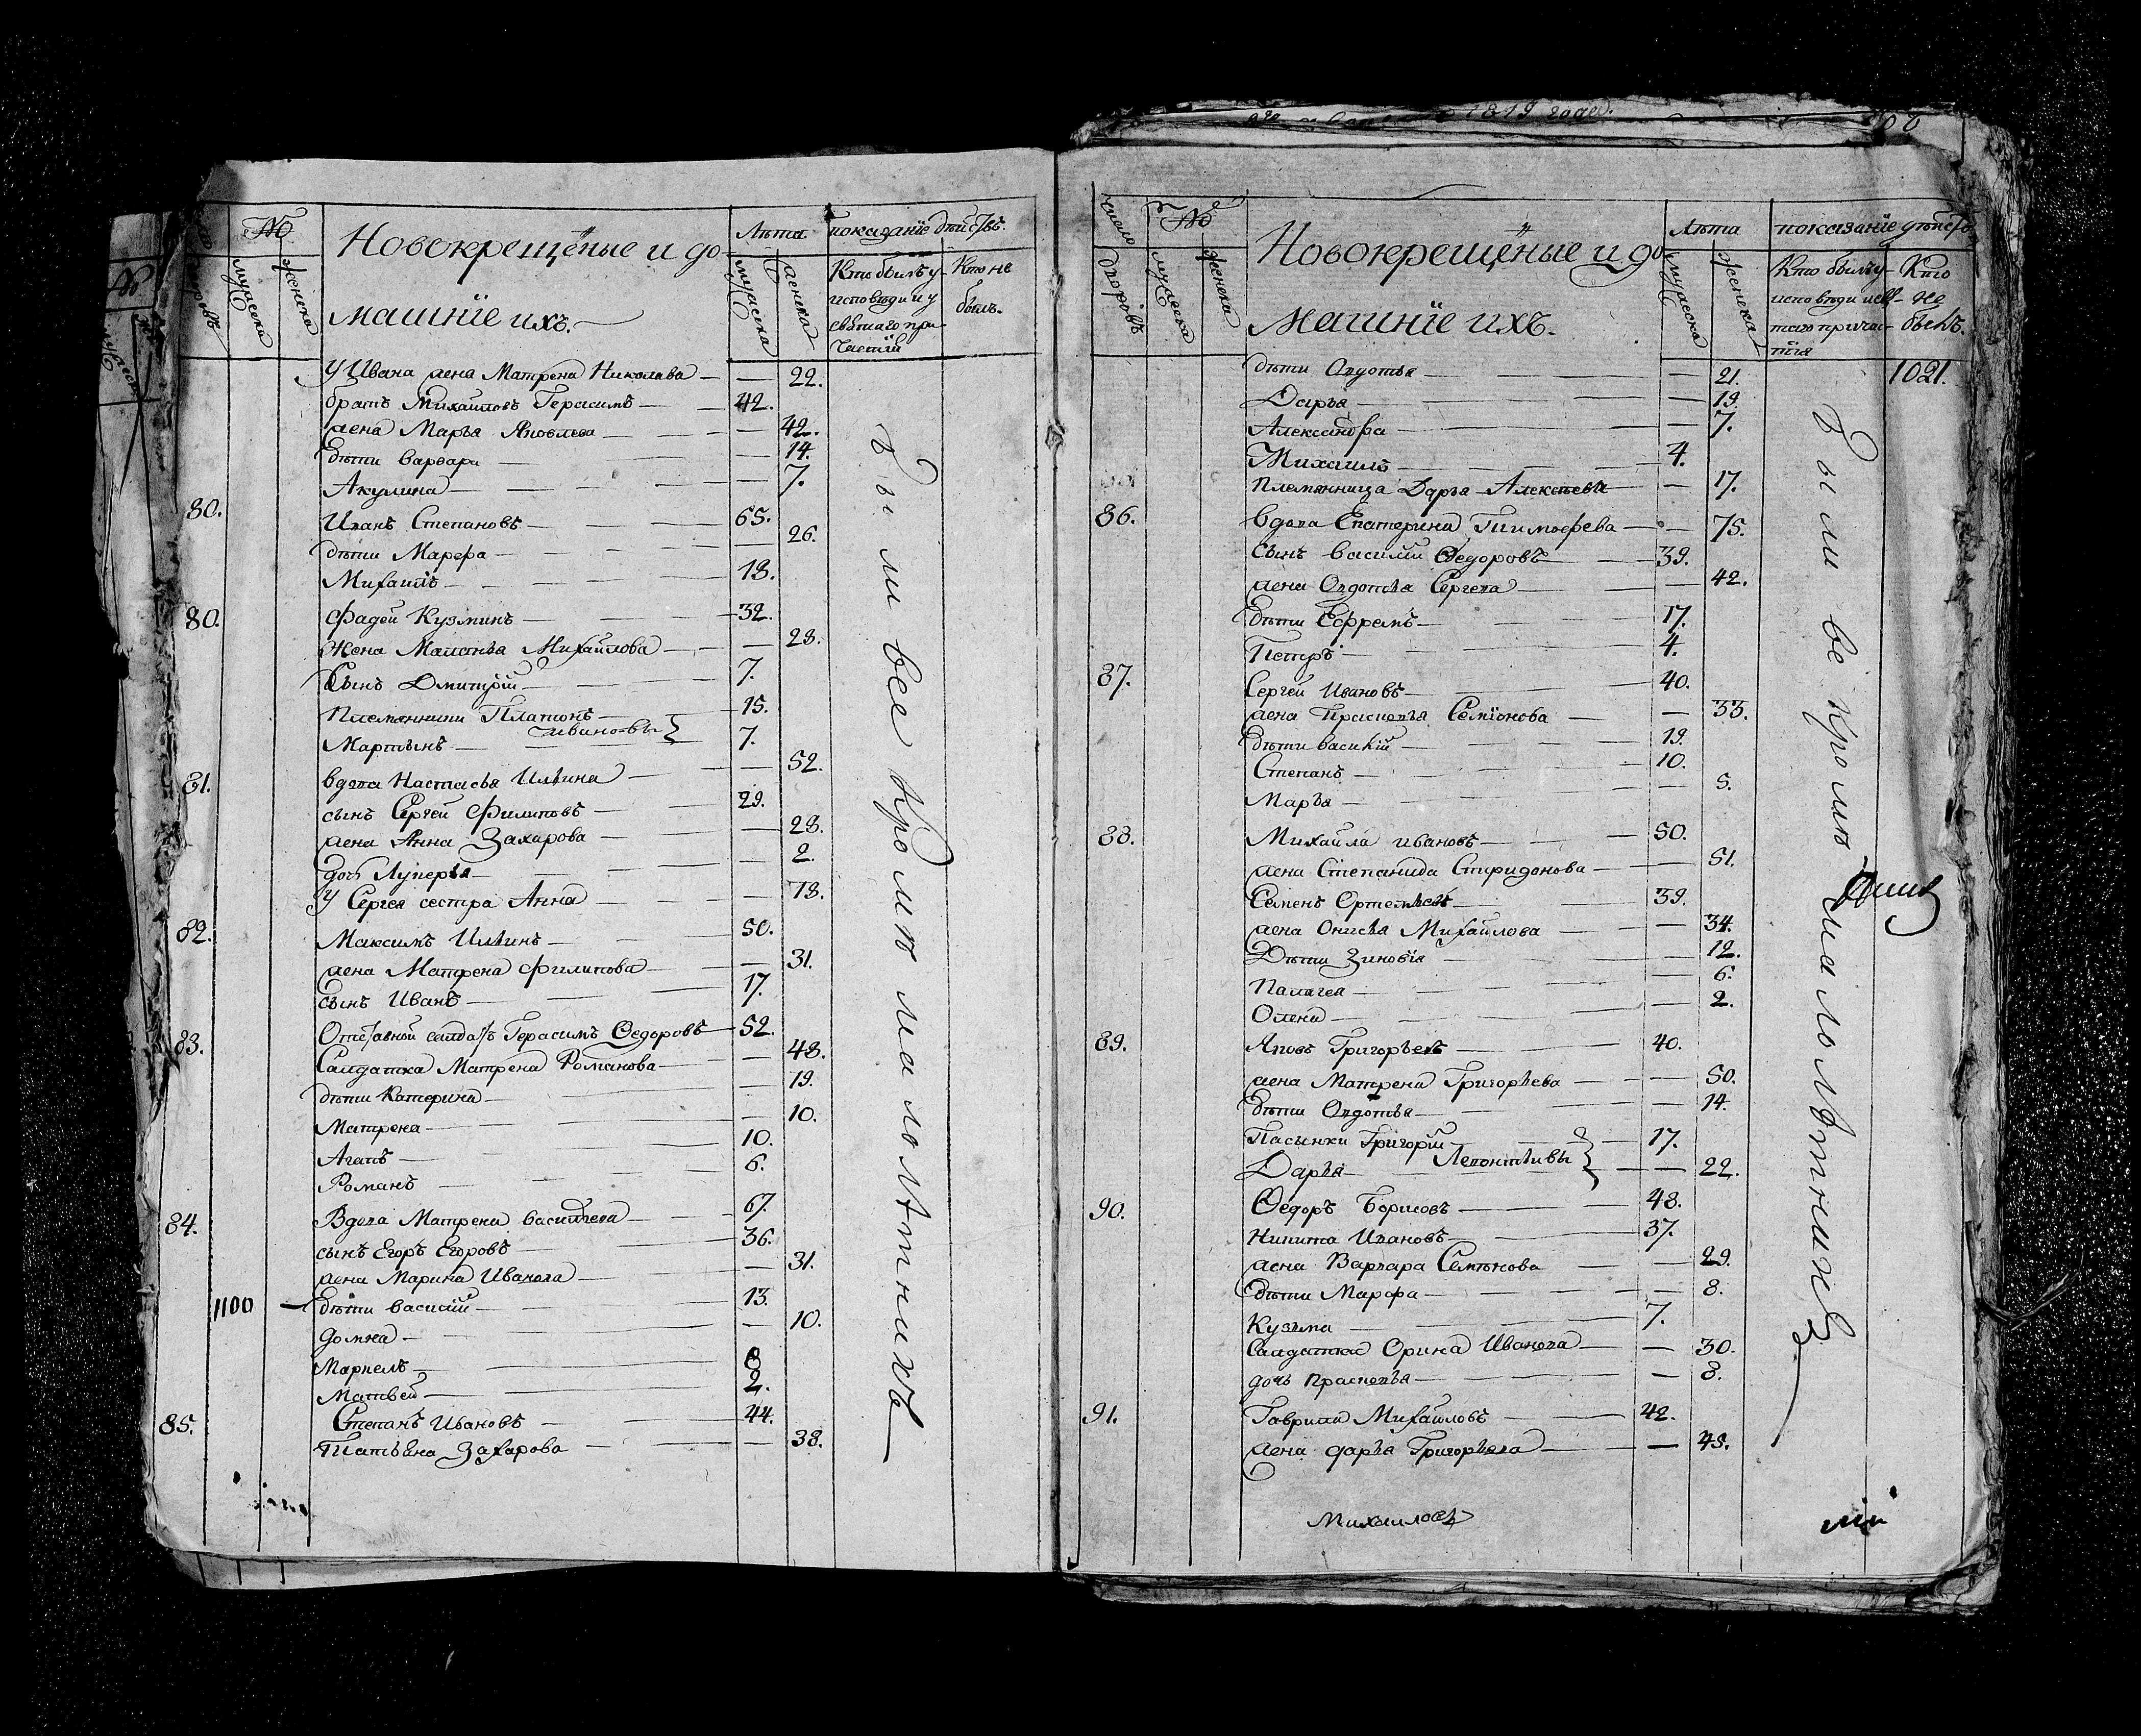 Новокрещёные и до
машніе ихъ.
Лѣта
показаніе дѣйствъ.
мужеска
женска
Кто былъ у
исповѣди и у
святаго при
частія
Кто не
былъ.
У Ивана жена Матрена Николава 22.
братъ Михаиловъ Герасимъ 42.
жена Марья Яковлева 42.
дѣти Варвара 14.
Акулина 7.
80. Иванъ Степановъ 65.
дѣти Марѳа 26.
Михаилъ 18.
80. Фадей Кузминъ 32.
Жена Михайлова 28.
Сынъ Дмитрій 7.
Племянники Платонъ 15.
Мартынъ Ивановы 7.
81. вдова Настасья Ильина 52.
сынъ Сергей Филиповъ 29.
жена Анна Захарова 28.
дочь Лукерья 2.
У Сергея сестра Анна 18.
82. Максимъ Ильинъ 50.
жена Матрена Филипова 31.
сынъ Иванъ 17.
83. Отставной салдатъ Герасимъ Ѳедоровъ 52.
Салдатка Матрена Романова 48.
дѣти Катерина 19.
Матрена 10.
Агапъ 10.
Романъ 6.
84. Вдова Матрена Василева 67.
сынъ Егоръ Егоровъ 36.
жена Марина Иванова 31.
1100 дѣти Василій 13.
Домна 10.
Маркелъ 8
Матвей 2.
85. Степанъ Ивановъ 44.
Татьяна Захарова 38.
были все кромѣ малолѣтнихъ
1819 года.
Новокрещёные и до
машніе ихъ.
число
дворовъ
мужеска
женска
Лѣта
показаніе дѣйств
мужеска
женска
Кто былъ у
исповѣди и свя-
таго причас-
тія
Кто
не
былъ.
дѣти Авдотья 21. 1021.
Дарья 19.
Александра 7.
Михаилъ 4.
племянница Дарья Алексѣева 17.
86. вдова Екатерина Тимофева 75.
Сынъ Василій Ѳедоровъ 39.
жена Авдотья Сергева 42.
дѣти Ефремъ 17.
Петръ 4.
87. Сергей Ивановъ 40.
жена Прасковья Семіонова 33.
дѣти Василій 19.
Степанъ 10.
Марья 5.
88. Михайла Ивановъ 50.
жена Степанида Спиридонова 51.
Семенъ Ортемьевъ 39.
жена Онисья Михайлова 34.
Дѣти Зиновія 12.
Палагея 6.
Олена 2.
89. Яковъ Григорьевъ 40.
жена Матрена Григорьева 50.
дѣти Авдотья 14.
Пасынки Григорій 17.
Дарья Леонтьивы 22.
90. Ѳедоръ Борисовъ 48.
Никита Ивановъ 37.
жена Варвара Семіонова 29.
дѣти Марѳа 8.
Кузьма 7.
Салдатка Орина Иванова 30.
дочь Прасковья 8.
91. Гаврила Михайловъ 42.
жена Дарья Григорьева 45.
были все кромѣ малолѣтнихъ
Михаиловъ